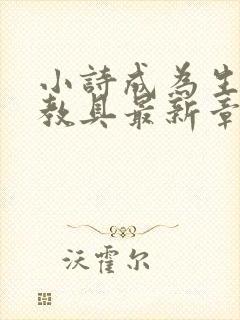 小詩成為生
教具最新章
沃霍尔